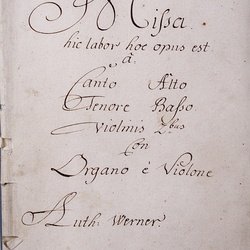 Missa
hic labor hoc opus est
à
Canto Alto
Tenore Basso
Violinis 2bus
Con
Organo è Violone
Auth: Werner.